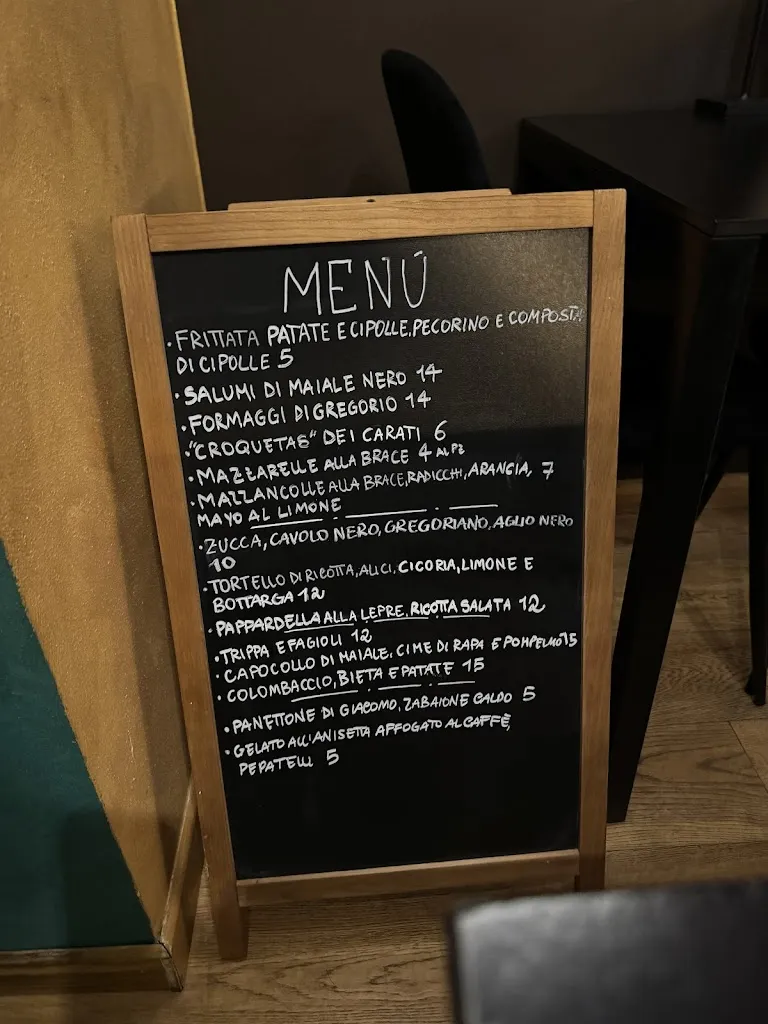 MENÚ
·FRITTATA PATATE E CIPOLLE, PECORINO E COMPOSTA
DI CIPOLLE 5
·SALUMI DI MAIALE NERO 14
·FORMAGGI DI GREGORIO 14
·"CROQUETAS" DEI CARATI 6
·MAZZARELLE ALLA BRACE 4 AL PZ
·MAZZANCOLLE ALLA BRACE, RADICCHI, ARANCIA, 7
MAYO AL LIMONE
·ZUCCA, CAVOLO NERO, GREGORIANO, AGLIO NERO
10
·TORTELLO DI RICOTTA, ALICI, CICORIA, LIMONE E
BOTTARGA 12
·PAPPARDELLA ALLA LEPRE, RICOTTA SALATA 12
·TRIPPA E FAGIOLI 12
·CAPOCOLLO DI MAIALE, CIME DI RAPA E POMPELMO 15
·COLOMBACCIO, BIETA E PATATE 15
·PANETTONE DI GIACOMO, ZABAIONE CALDO 5
·GELATO ALL'ANISETTA AFFOGATO AL CAFFÈ,
PEPATELLI 5